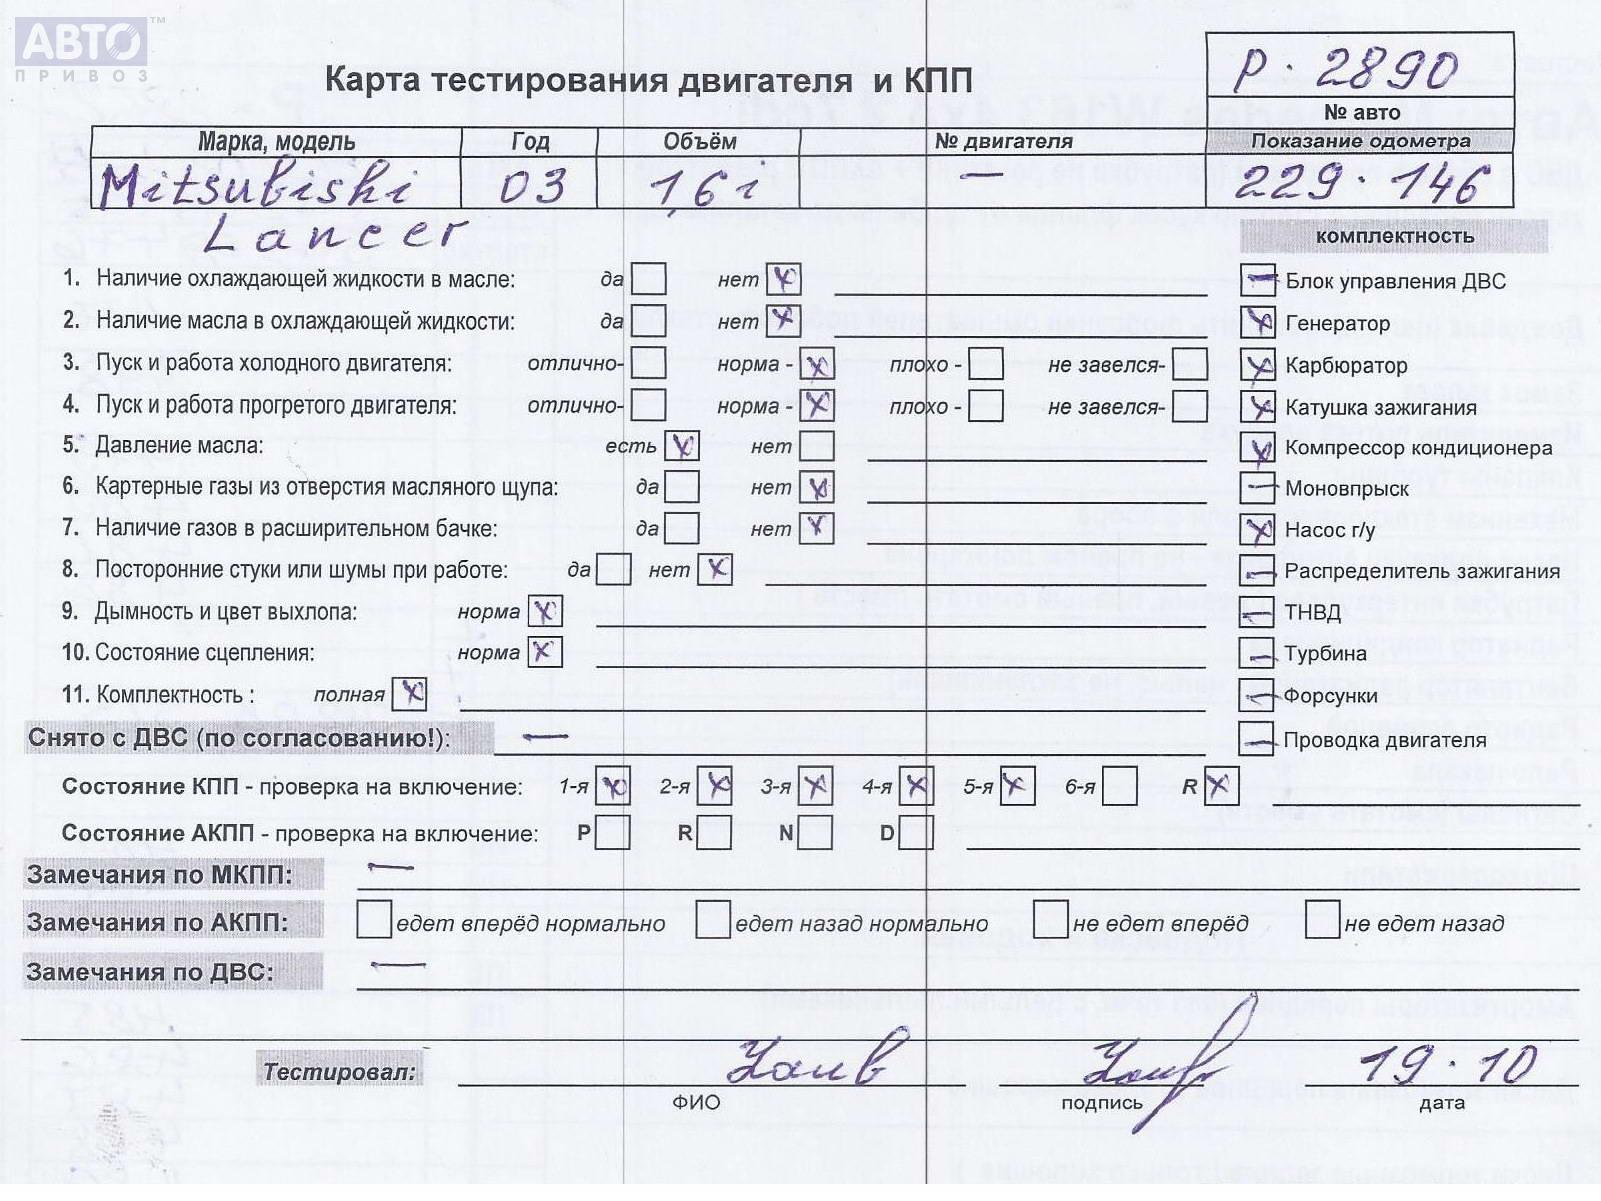 АВТО™
ПРИВОЗ
Карта тестирования двигателя и КПП
р. 2890
№ авто
Марка, модель Год Объём № двигателя Показание одометра
Mitsubishi 03 1,6 i — 229.146
Lancer
комплектность
1. Наличие охлаждающей жидкости в масле: да нет x
2. Наличие масла в охлаждающей жидкости: да нет x
3. Пуск и работа холодного двигателя: отлично- норма - x плохо - не завелся-
4. Пуск и работа прогретого двигателя: отлично- норма - x плохо - не завелся-
5. Давление масла: есть x нет
6. Картерные газы из отверстия масляного щупа: да нет x
7. Наличие газов в расширительном бачке: да нет x
8. Посторонние стуки или шумы при работе: да нет x
9. Дымность и цвет выхлопа: норма x
10. Состояние сцепления: норма x
11. Комплектность : полная x
— Блок управления ДВС
x Генератор
x Карбюратор
x Катушка зажигания
x Компрессор кондиционера
— Моновпрыск
x Насос г/у
— Распределитель зажигания
— ТНВД
— Турбина
— Форсунки
— Проводка двигателя
Снято с ДВС (по согласованию!): —
Состояние КПП - проверка на включение: 1-я x 2-я x 3-я x 4-я x 5-я x 6-я R x
Состояние АКПП - проверка на включение: P R N D
Замечания по МКПП: —
Замечания по АКПП: едет вперёд нормально едет назад нормально не едет вперёд не едет назад
Замечания по ДВС: —
Тестировал: 19.10
ФИО подпись дата